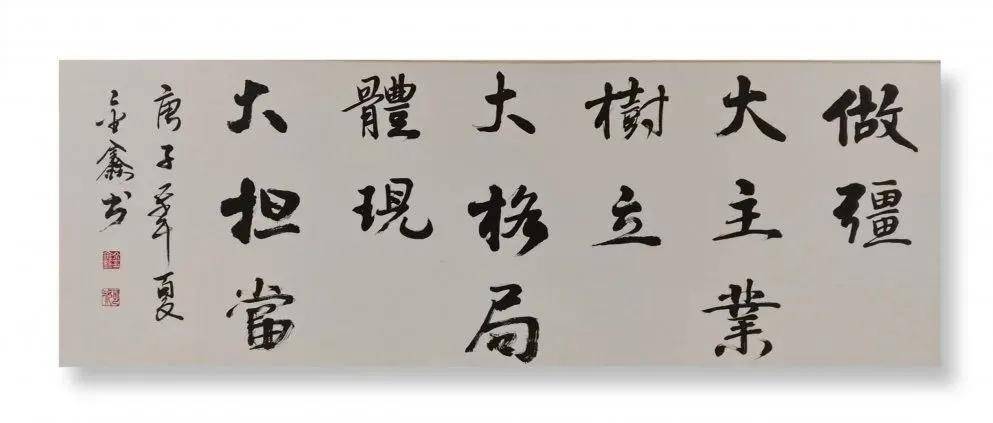 做彊
大主業
樹立
大格局
體現
大担當
庚子年夏
金鑫书